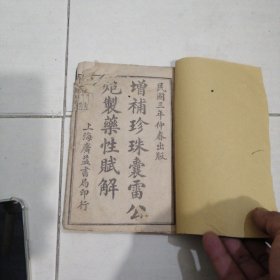 民國三年仲春出版
增補珍珠囊雷公
炮製藥性賦解
上海廣益書局印行